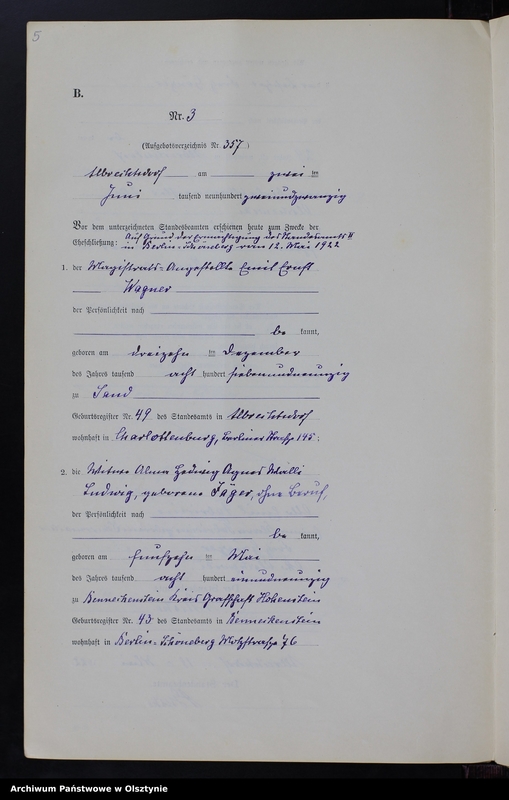 5
B.
Nr. 3
(Aufgebotsverzeichnis Nr. 357)
Albrechtsdorf am zwei ten
Juni tausend neunhundert zweiundzwanzig
Vor dem unterzeichneten Standesbeamten erschienen heute zum Zwecke der
Eheschließung: Auf Grund der Ermächtigung des Standesamts II
in Berlin-Schöneberg vom 12. Mai 1922
1. der Magistrats-Angestellte Emil Ernst
Wagner
der Persönlichkeit nach
be kannt,
geboren am dreizehn ten Dezember
des Jahres tausend acht hundert siebenundneunzig
zu Sand
Geburtsregister Nr. 49 des Standesamts in Albrechtsdorf
wohnhaft in Charlottenburg, Berliner Straße 145;
2. die Witwe Alma Hedwig Agnes Walli
Ludwig, geborene Jäger, ohne Beruf,
der Persönlichkeit nach
be kannt,
geboren am fünfzehn ten Mai
des Jahres tausend acht hundert einundneunzig
zu Benneckenstein Kreis Grafschaft Hohenstein
Geburtsregister Nr. 45 des Standesamts in Benneckenstein
wohnhaft in Berlin-Schöneberg Motzstraße 76
Archiwum Państwowe w Olsztynie